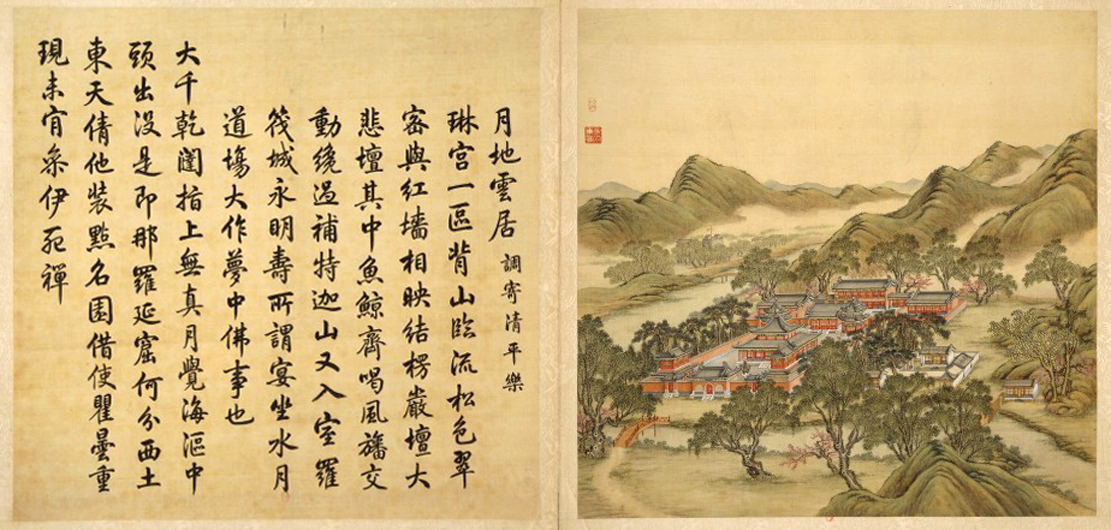 月地雲居 調寄清平樂
琳宮一區背山臨流松色翠
密與紅墻相映結楞巖壇大
悲壇其中魚鯨齊喝風旛交
動纔過補特迦山又入室羅
筏城永明壽所謂宴坐水月
道塲大作夢中佛事也
大千乾闥指上無真月覺海漚中
頭出沒是即那羅延窟何分西土
東天倩他裝點名園借使瞿曇重
現未肎叅伊死禪